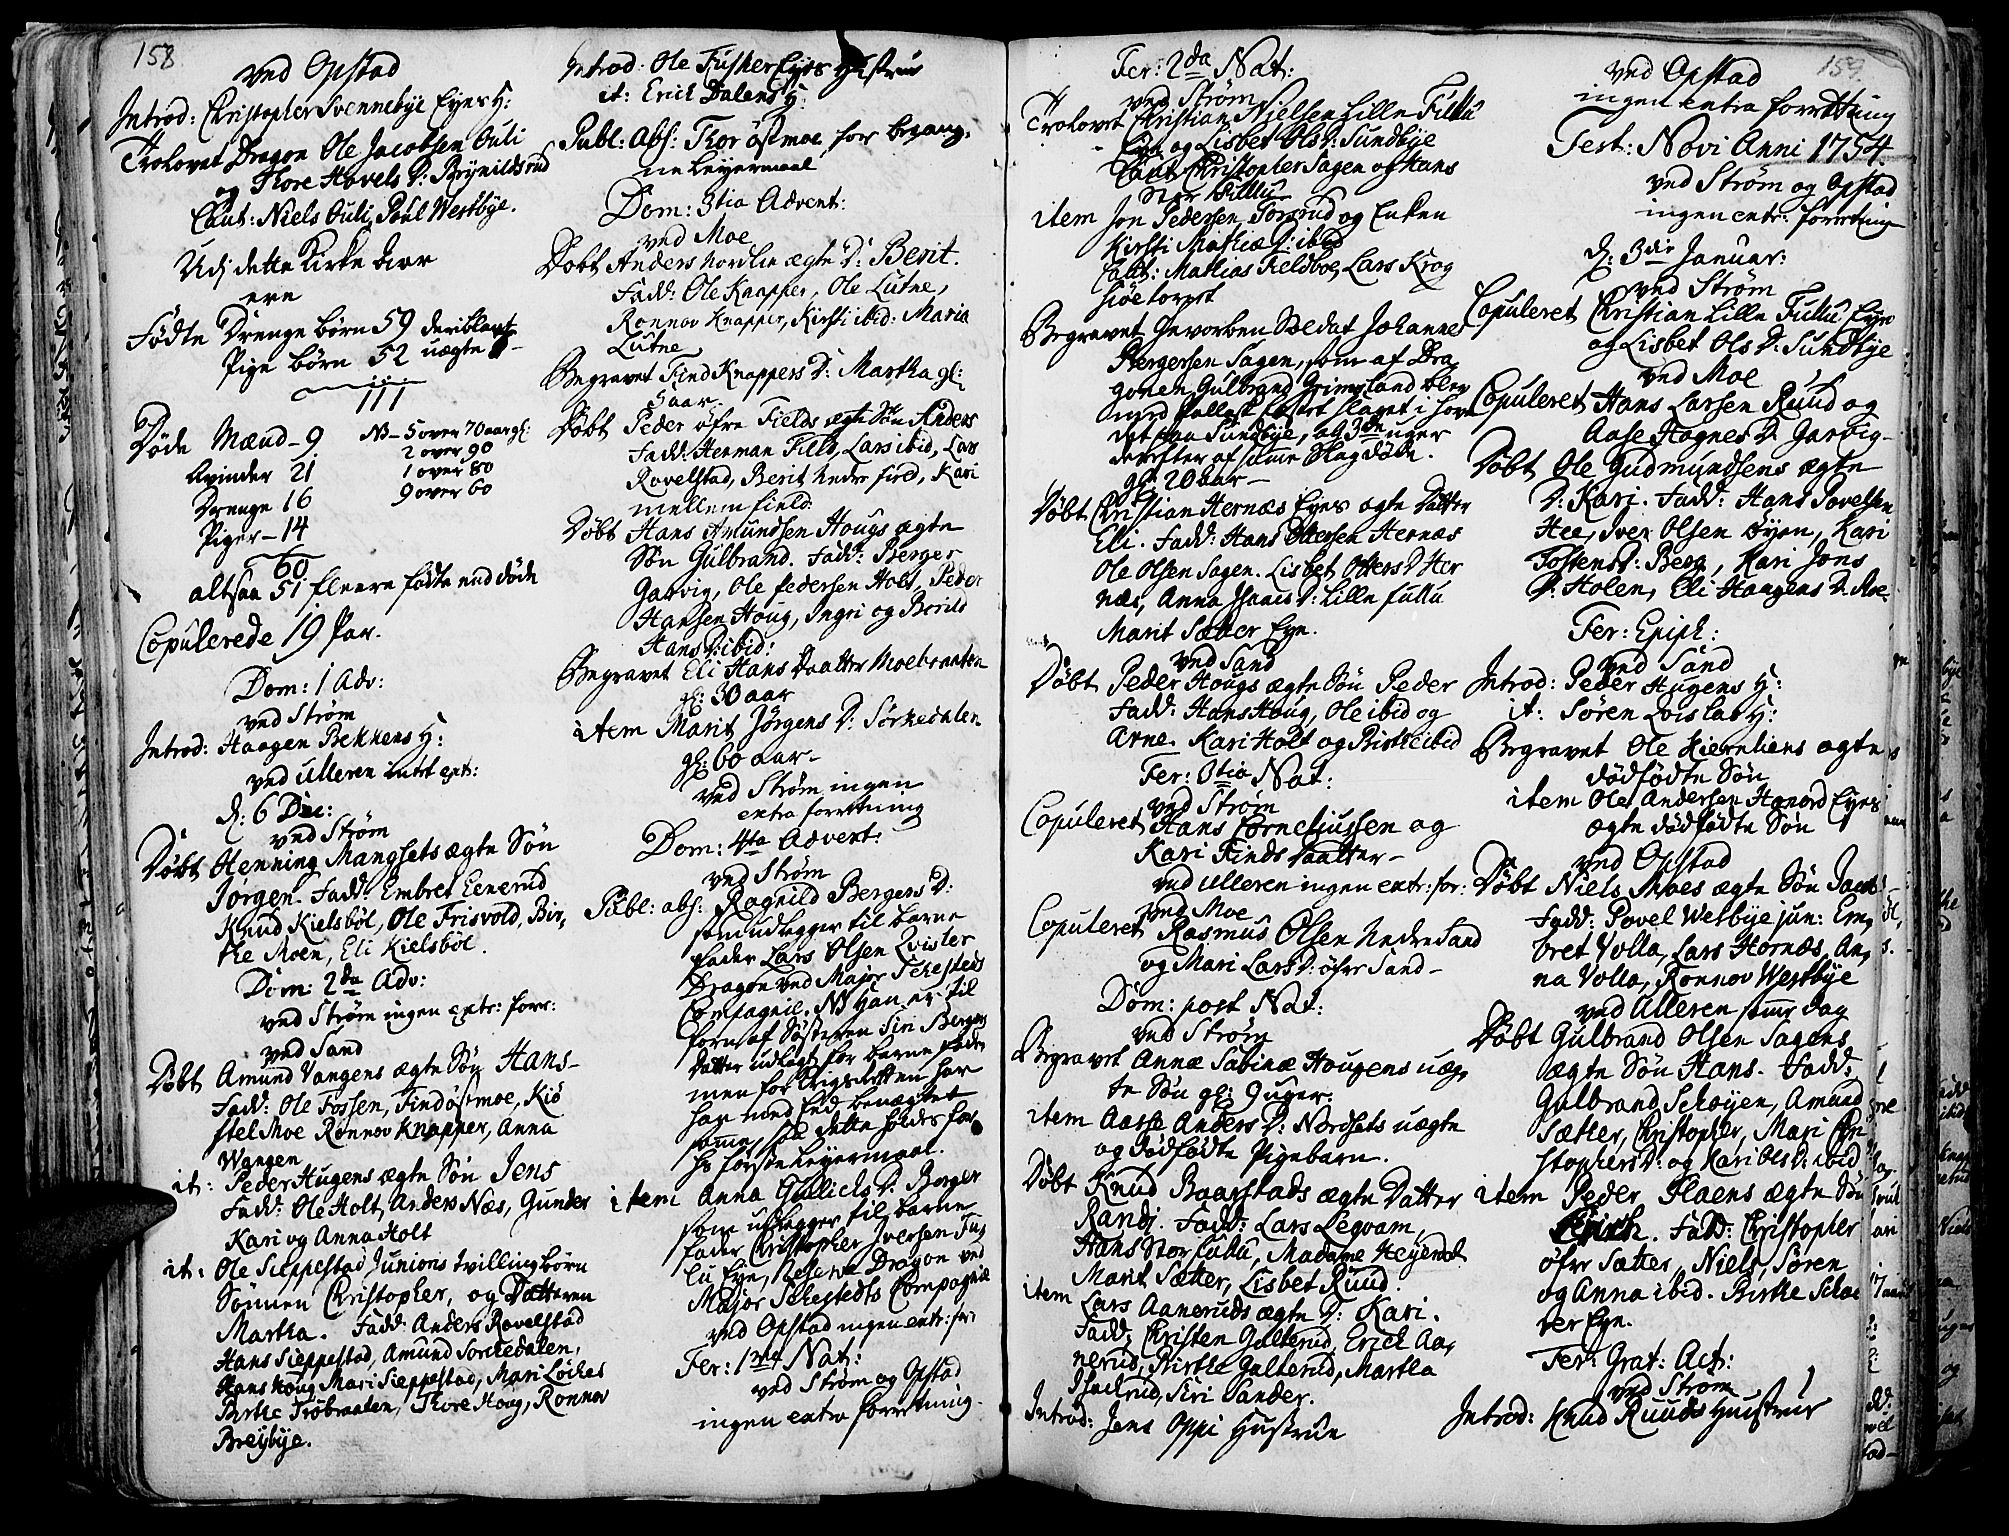 158
ved Opstad
Introd: Christopher Svennebye Eyes H:
Trolovet Dragon Ole Jacobsen Ouli
og Thore Havels D: Brynildsrud
Caut: Niels Ouli, Poul Westbye.
Udj dette Kirke Aar
ere
Fødte Drenge børn 59 deriblant
Pige børn 52 uægte
111
Døde Mænd - 9 NB - 5 over 70 aar gl:
Qvinder 21 2 over 90
Drenge 16 1 over 80
Piger - 14 9 over 60
60
altsaa 51 fleere fødte end døde
Copulerede 19 Par.
Dom: 1 Adv:
ved Strøm
Introd: Haagen Bekkens H:
ved Ulleren intet extr:
D: 6 Dec:
ved Strøm
Døbt Henning Mangsets ægte Søn
Jørgen. Fadd: Embret Eenerud
Knud Kielsböl, Ole Frisvold, Bir,
the Moen, Eli Kielsböl.
Dom: 2da Adv:
ved Strøm ingen extr: forr:
ved Sand
Døbt Amund Vangens ægte Søn Hans -
Fadd: Ole Fossen, Find östmoe, Kiö
stel Moe Ronnov Knapper, Anna
Wangen
it: Peder Hugens ægte Søn Jens
Fadd: Ole Holt, Anders Næs, Gunder
Kari og Anna Holt
it: Ole Sieppestad Juniors tvilling børn
Sønnen Christopher, og Datteren
Martha. Fadd: Anders Rovelstad
Hans Sieppestad, Amund Sorkedalen,
Hans Houg Mari Sieppestad, Mari Löchas
Birthe Tröbraaten, Thore Houg, Ronnov
Breybye.
Introd: Ole Fusker Eyes Hustrue
it: Erich Dalens H:
Publ: Abs: Thor östmoe for begang,
ne Leyermaal
Dom: 3tia Advent:
ved Moe
Døbt Anders Nordlie ægte D: Berit.
Fadd: Ole Knapper, Ole Lutne,
Ronnov Knapper, Kirsti ibid: Maria
Lutne
Begravet Find Knappers D: Martha gl:
5 aar.
Døbt Peder öfre Fields ægte Søn Anders
Fadd: Herman Field, Lars ibid, Lars
Rovelstad, Berit Nedre field, Kari
mellem field:
Døbt Hans Amundsen Hougs ægte
Søn Gulbrand. Fadd: Berger
Garvig, Ole Pedersen Holt, Peder
Hansen Houg, Ingri og Borild
Hans D: ibid:
Begravet Eli Hans Daatter Moebraaten
gl: 30 aar
item Marit Jørgens D: Sörkedalen
gl: 60 aar -
ved Strøm ingen
extra forretning
Dom: 4ta Advent:
ved Strøm
Publ: abs: Ragnild Bergers D:
som udlegger til barne
fader Lars Olsen Qvisler
Dragon ved Major Sehesteds
Compagnie. NB han er til
forn af Søsteren Siri Bergers
datter udlagt for barne fader
men for Krigsretten har
han med Eed benægtet
samme, saa dette holdes for
hs første Leyermaal.
item Anna Gullichs D: Berger
som udlegger til barne
fader Christopher Iversen Ful,
lu Eye, Reserve Dragon ved
Major Sehestedts Compagnie
ved Opstad ingen extr: for:
Fer: 1ma Nat:
ved Strøm og Opstad
ingen extra forretning.
Fer: 2da Nat:
ved Strøm
Trolovet Christian Nielsen Lille Fullu
Eye og Lisbet Ols D: Sundbye
Caut Christopher Sagen og Hans
Stor Fullu
item Jon Pedersen Torsrud og Enken
Kirsti Mathiæ D: ibid
Caut: Mathias Fieldboe, Lars Krog
siøetorpet
Begravet Gevorben Soldat Johannes
Bergersen Sagen, som af Dra,
gonen Gulbrand Grimsland blev
med Pallask slaget i hove
det paa Sundbye, og 3de uger
derefter af samme Slag døde.
gl: 20 aar -
Døbt Christian Hernæs Eyes ægte Datter
Eli. Fadd: Hans Ottersen Hernæs
Ole Olsen Sagen. Lisbet Otters D Her
næs, Anna Isaacs D: Lille fullu
Marit Sætter Eye.
ved Sand
Døbt Peder Hougs ægte Søn Peder
Fadd: Hans Houg, Ole ibid og
Arne. Kari Holt og Birthe ibid
Fer: 3tia Nat:
ved Strøm
Copuleret Hans Corneliussen og
Kari Finds Daatter -
ved Ulleren ingen extr: for:
ved Moe
Copuleret Rasmus Olsen Nedre Sand
og Mari Lars D: öfre Sand -
Dom: post Nat:
ved Strøm
Begravet Annæ Sabinæ Hougens uæg,
te Søn gl: 9 uger.
item Aase Anders D: Nordsets uægte
og dødfødte Pigebarn.
Døbt Knud Baarstads ægte Datter
Randj. Fadd: Lars Legvam,
Hans Stor fullu, Madame Heyerdal
Marit Sætter, Lisbet Ruud.
item Lars Aaneruds ægte D: Kari.
Fadd: Christen Gulterud, Erich Aa,
nerud, Birthe Gulterud, Martha
Isachrud, Siri Sander.
Introd: Jens Oppi Hustrue
159
ved Opstad
ingen extra forretning
Fest: Novi Anni 1754.
ved Strøm og Opstad
ingen extr: forretning
D: 3die Januar:
ved Strøm
Copuleret Christian Lille Fullu Eye
og Lisbet Ols D: Sundbye
ved Moe
Copuleret Hans Larsen Ruud og
Aase Hognes D. Garvig -
Døbt Ole Gudmundsens ægte
D: Kari. Fadd: Hans Povelsen
Hee, Iver Olsen Øyen, Kari
Tostens D: Berg, Kari Jons
D: Holen, Eli Haagens D: Roe.
Fer: Epiph:
ved Sand
Introd: Peder Hugens H:
it: Søren H:
Begravet Ole Kiernliens ægte
dødfødte Søn
item Ole Andersen Hanord Eyes
ægte dødfødte Søn
ved Opstad
Døbt Niels Moes ægte Søn Jacob
Fadd: Povel Wesbye jun: Em,
bret Volla, Lars Hornæs, An,
na Volla, Ronnov Westbye
ved Ulleren samme dag
Døbt Gulbrand Olsen Sagens
ægte Søn Hans. Fadd:
Gulbrand Schøyen, Amund
Sætter, Christopher, Mari Chri
stophers D: og Kari Ols D: ibid
item Peder Flaens ægte Søn
Erich. Fadd: Christopher
öfre Sætter, Niels, Søren
og Anna ibid. Birthe Schae
ter Eye.
Fer: Grat: Act:
ved Strøm
Introd: Knud Ruuds Hustrue